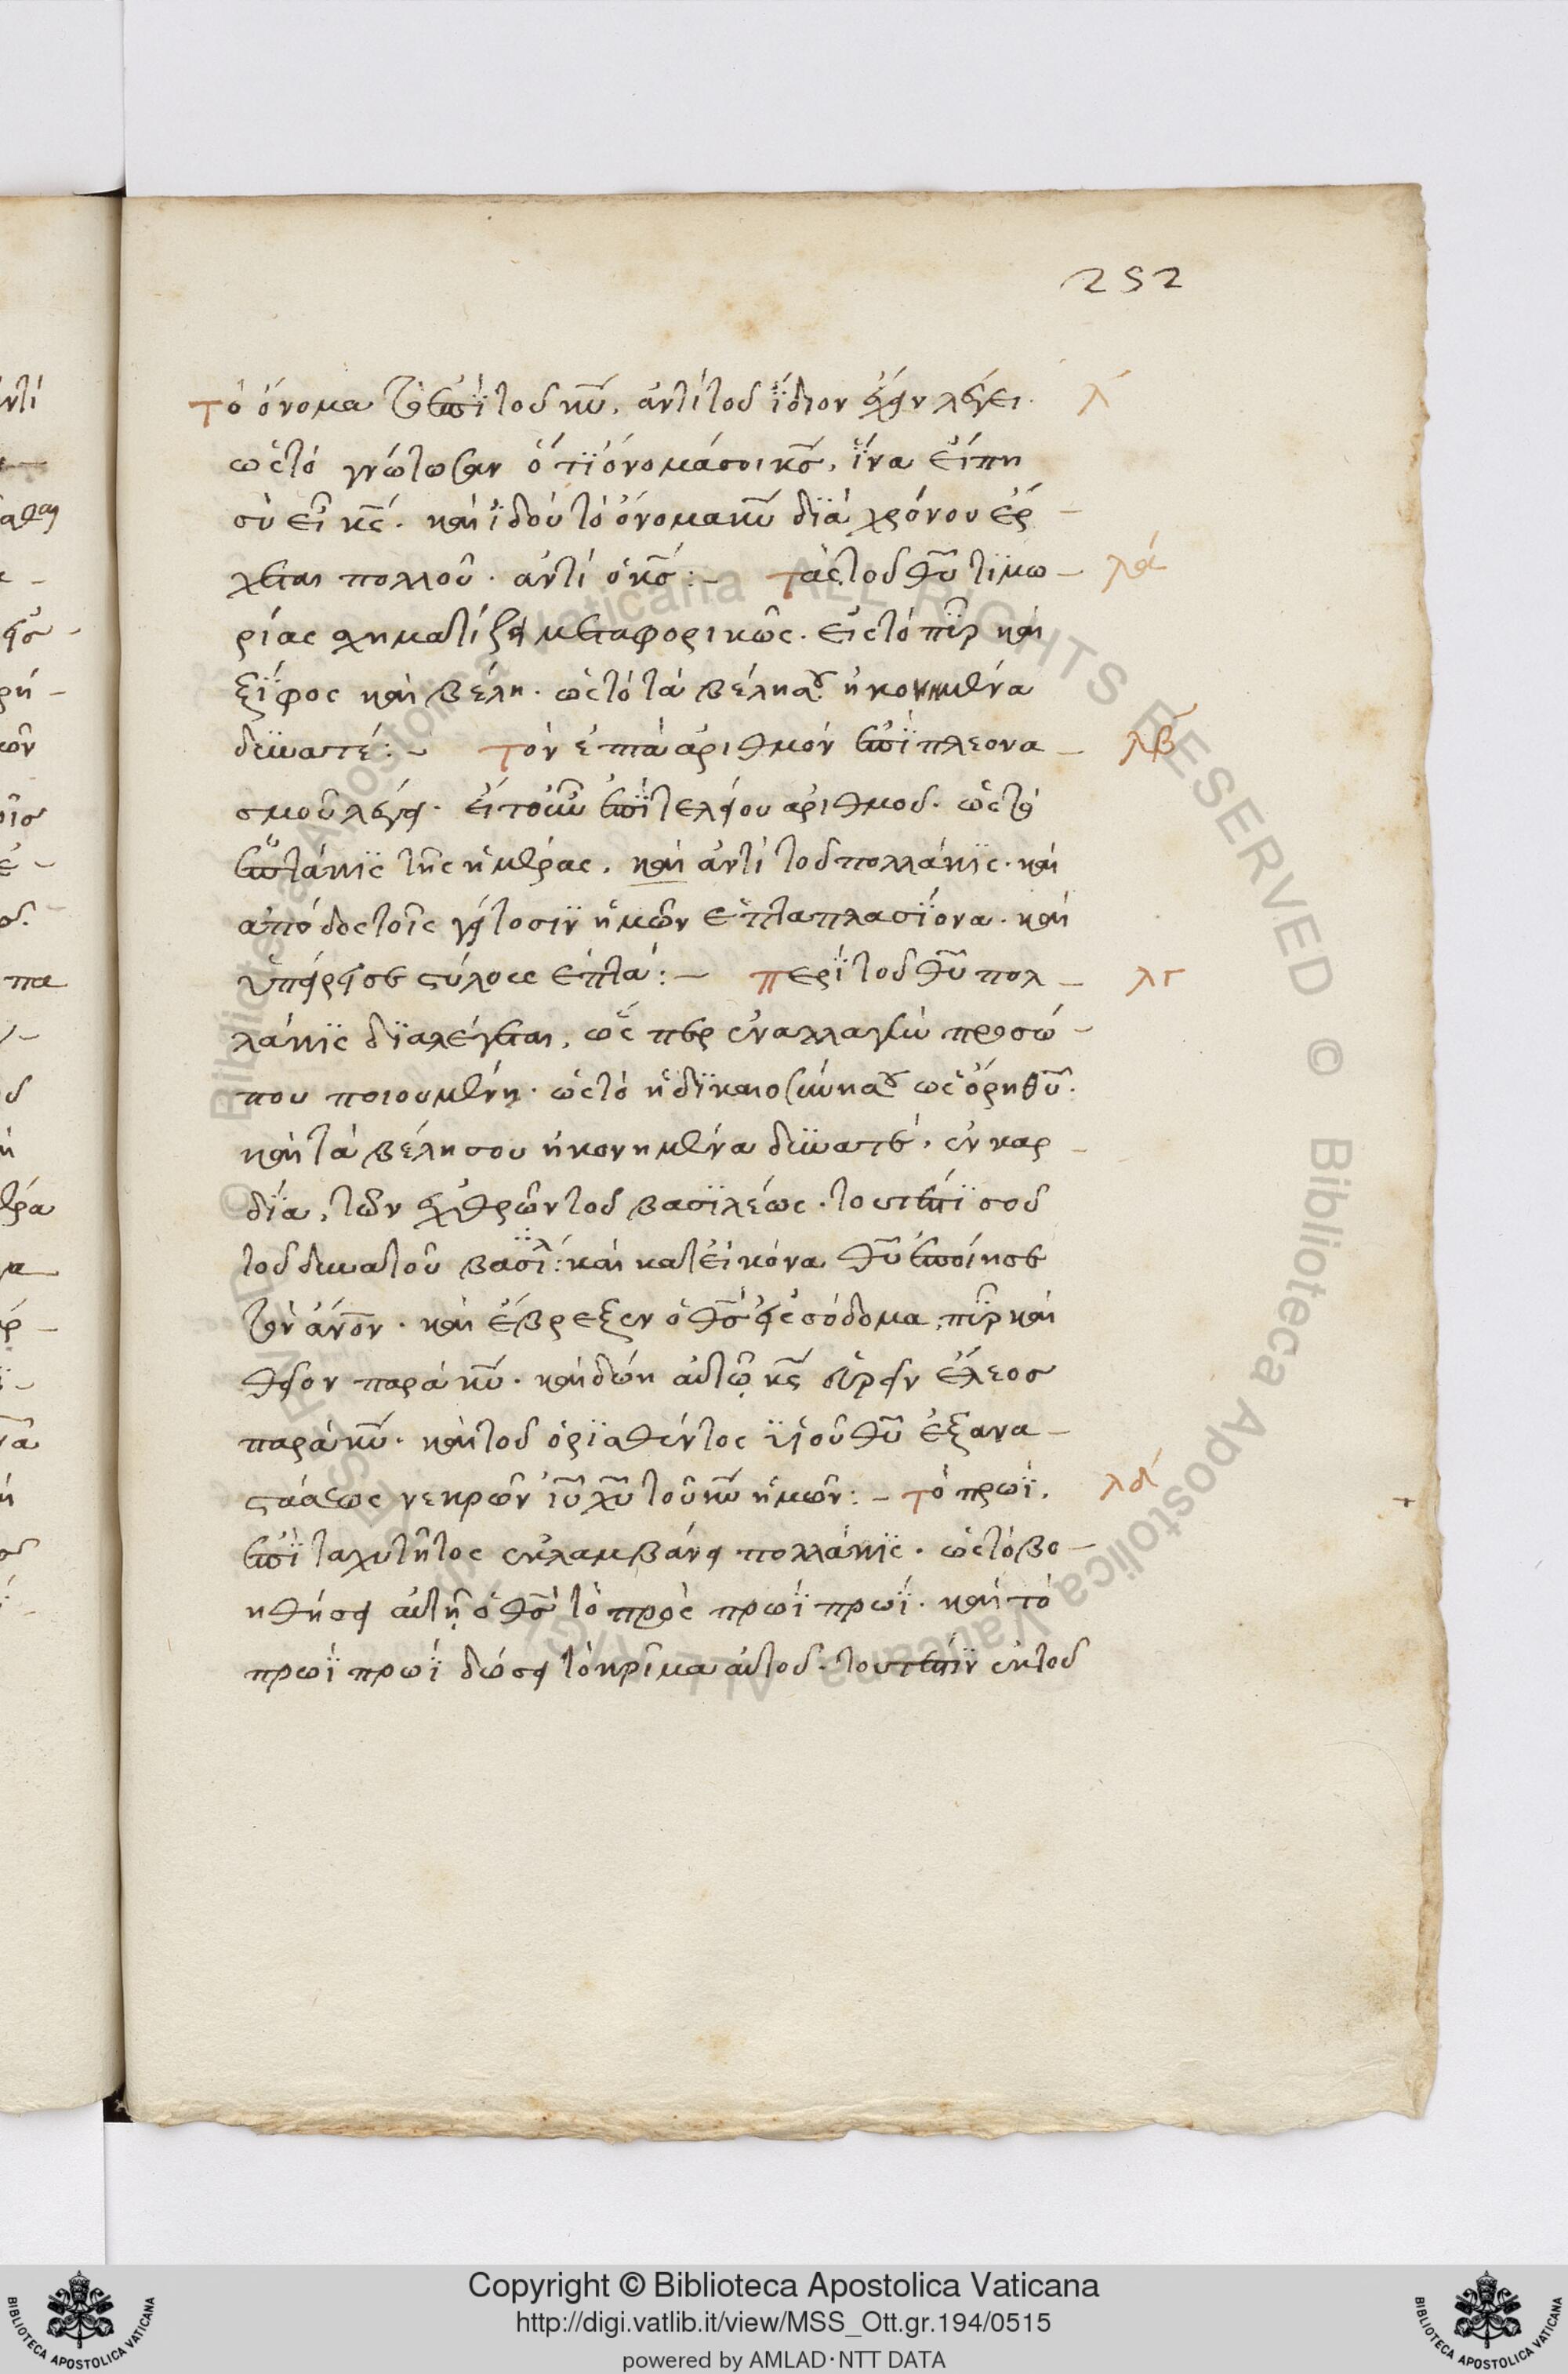 252
τὸ ὄνομα τὸ ἐπῒ τοῦ κυ̅, ἀντὶ τοῦ ἴδιον ἔχειν λέγει. λ
ὡς τὸ γνώτωσαν ὅτϊ ὄνομά σοι κς̅, ἵνα εἴπη
σὺ εἶ κς̅. καὶ ϊδοὺ τὸ ὄνομα κυ̅ δϊὰ χρόνου ἔρ
χεται πολλοῦ. ἀντὶ ὁ κς̅:- τὰς τοῦ θυ̅ τϊμω λα
ρίας σχηματίζει μεταφορικῶς. εἰς τὸ πῦρ καὶ
ξῒφος καὶ βέλη. ὡς τὸ τὰ βέλη αυ ἠκονημένα
δϋνατέ:- τὸν ἑπτὰ ἀριθμὸν ἐπῒ πλεονα λβ
σμοῦ λέγει. ἐπῒ τελείου ἀριθμοῦ. ὡς τὸ
ἑπτάκϊς τῆς ἡμέρας. καὶ ἀντὶ τοῦ πολλάκϊς. καὶ
ἀπόδος τοῖς γείτοσϊν ἡμῶν ἑπταπλασϊονα. καὶ
ὑπήρεισε στύλους ἑπτά:- περῒ τοῦ θυ̅ πολ λγ
λάκϊς δϊαλέγεται, ὥς περ ἐναλλαγὴν προσώ
που ποιουμένη. ὡς τὸ ἡ δϊκαιοσύνη αυ ὡς ὄρη θυ̅.
καὶ τὰ βέλη σου ἠκονημένα δϋνατὲ, ἐν καρ
δϊα, τῶν ἐχθρῶν τοῦ βασϊλέως. τουτέστϊ σοῦ
τοῦ δυνατοῦ βασϊλ: καὶ κατ εἰκόνα θυ̅ ἐποίησε
τὸν ἄνον̅. καὶ ἔβρεξεν ὁ θς̅ εἰς σόδομα, πῦρ καὶ
θεῖον παρὰ κυ̅. καὶ δώη αὐτῷ κς̅ εὑρεῖν ἔλεος
παρὰ κυ̅. καὶ τοῦ ὁρϊσθέντος ϋἱοῦ θυ̅ ἐξ ἀνα
στάσεως νεκρῶν ἰυ̅ χυ̅ τοῦ κυ̅ ἡμῶν:- τὸ πρωῒ, λδ
ἐπῒ ταχυτῆτος ἐκλαμβάνει πολλάκϊς. ὡς τὸ βο
ηθήσει αὐτῇ ὁ θς̅ τὸ πρὸς πρωῒ πρωΐ. καὶ τὸ
πρωῒ πρωῒ δώσει τὸ κρῖμα αὐτοῦ. τουτέστϊν ἐκ τοῦ
Copyright © Biblioteca Apostolica Vaticana
http://digi.vatlib.it/view/MSS_Ott.gr.194/0515
powered by AMLAD·NTT DATA